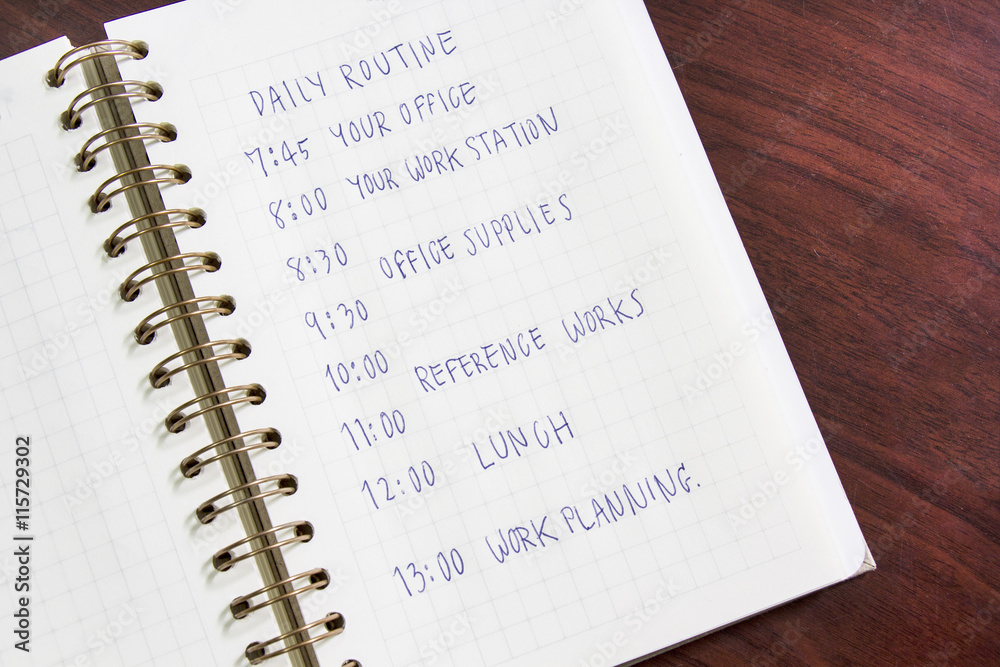 DAILY ROUTINE
7:45 YOUR OFFICE
8:00 YOUR WORK STATION
8:30 OFFICE SUPPLIES
9:30
10:00 REFERENCE WORKS
11:00
12:00 LUNCH
13:00 WORK PLANNING.
Adobe Stock | #115729302